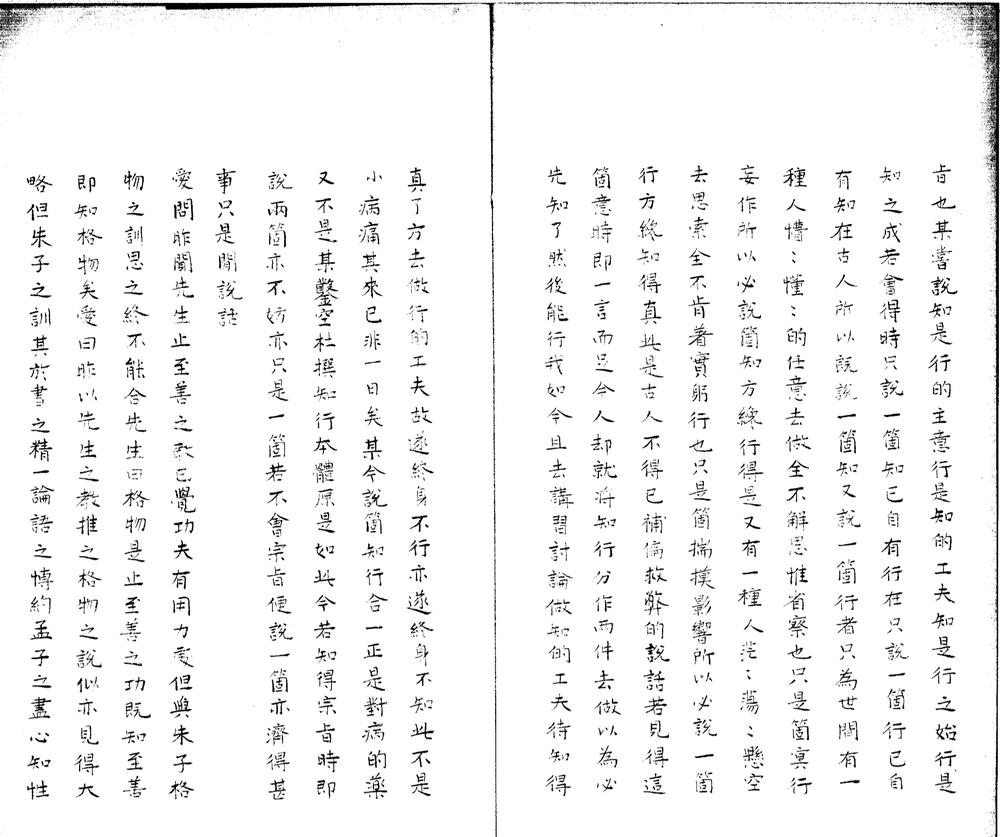 旨也某嘗說知是行的主意行是知的工夫知是行之始行是
知之成若會得時只說一箇知已自有行在只說一箇行已自
有知在古人所以既說一箇知又說一箇行者只為世間有一
種人懵〻懂〻的任意去做全不解思惟省察也只是箇冥行
妄作所以必說箇知方纔行得是又有一種人茫〻蕩〻懸空
去思索全不肯着實躬行也只是箇揣摸影響所以必說一箇
行方纔知得真此是古人不得已補偏救弊的說話若見得這
箇意時即一言而足今人却就將知行分作兩件去做以為必
先知了然後能行我如今且去講習討論做知的工夫待知得
真了方去做行的工夫故遂終身不行亦遂終身不知此不是
小病痛其來已非一日矣某今說箇知行合一正是對病的藥
又不是某鑿空杜撰知行本體原是如此今若知得宗旨時即
說兩箇亦不妨亦只是一箇若不會宗旨便說一箇亦濟得甚
事只是閒說話
愛問昨聞先生止至善之教已覺功夫有用力處但與朱子格
物之訓思之終不能合先生曰格物是止至善之功既知至善
即知格物矣愛曰昨以先生之教推之格物之說似亦見得大
略但朱子之訓其於書之精一論語之博約孟子之盡心知性